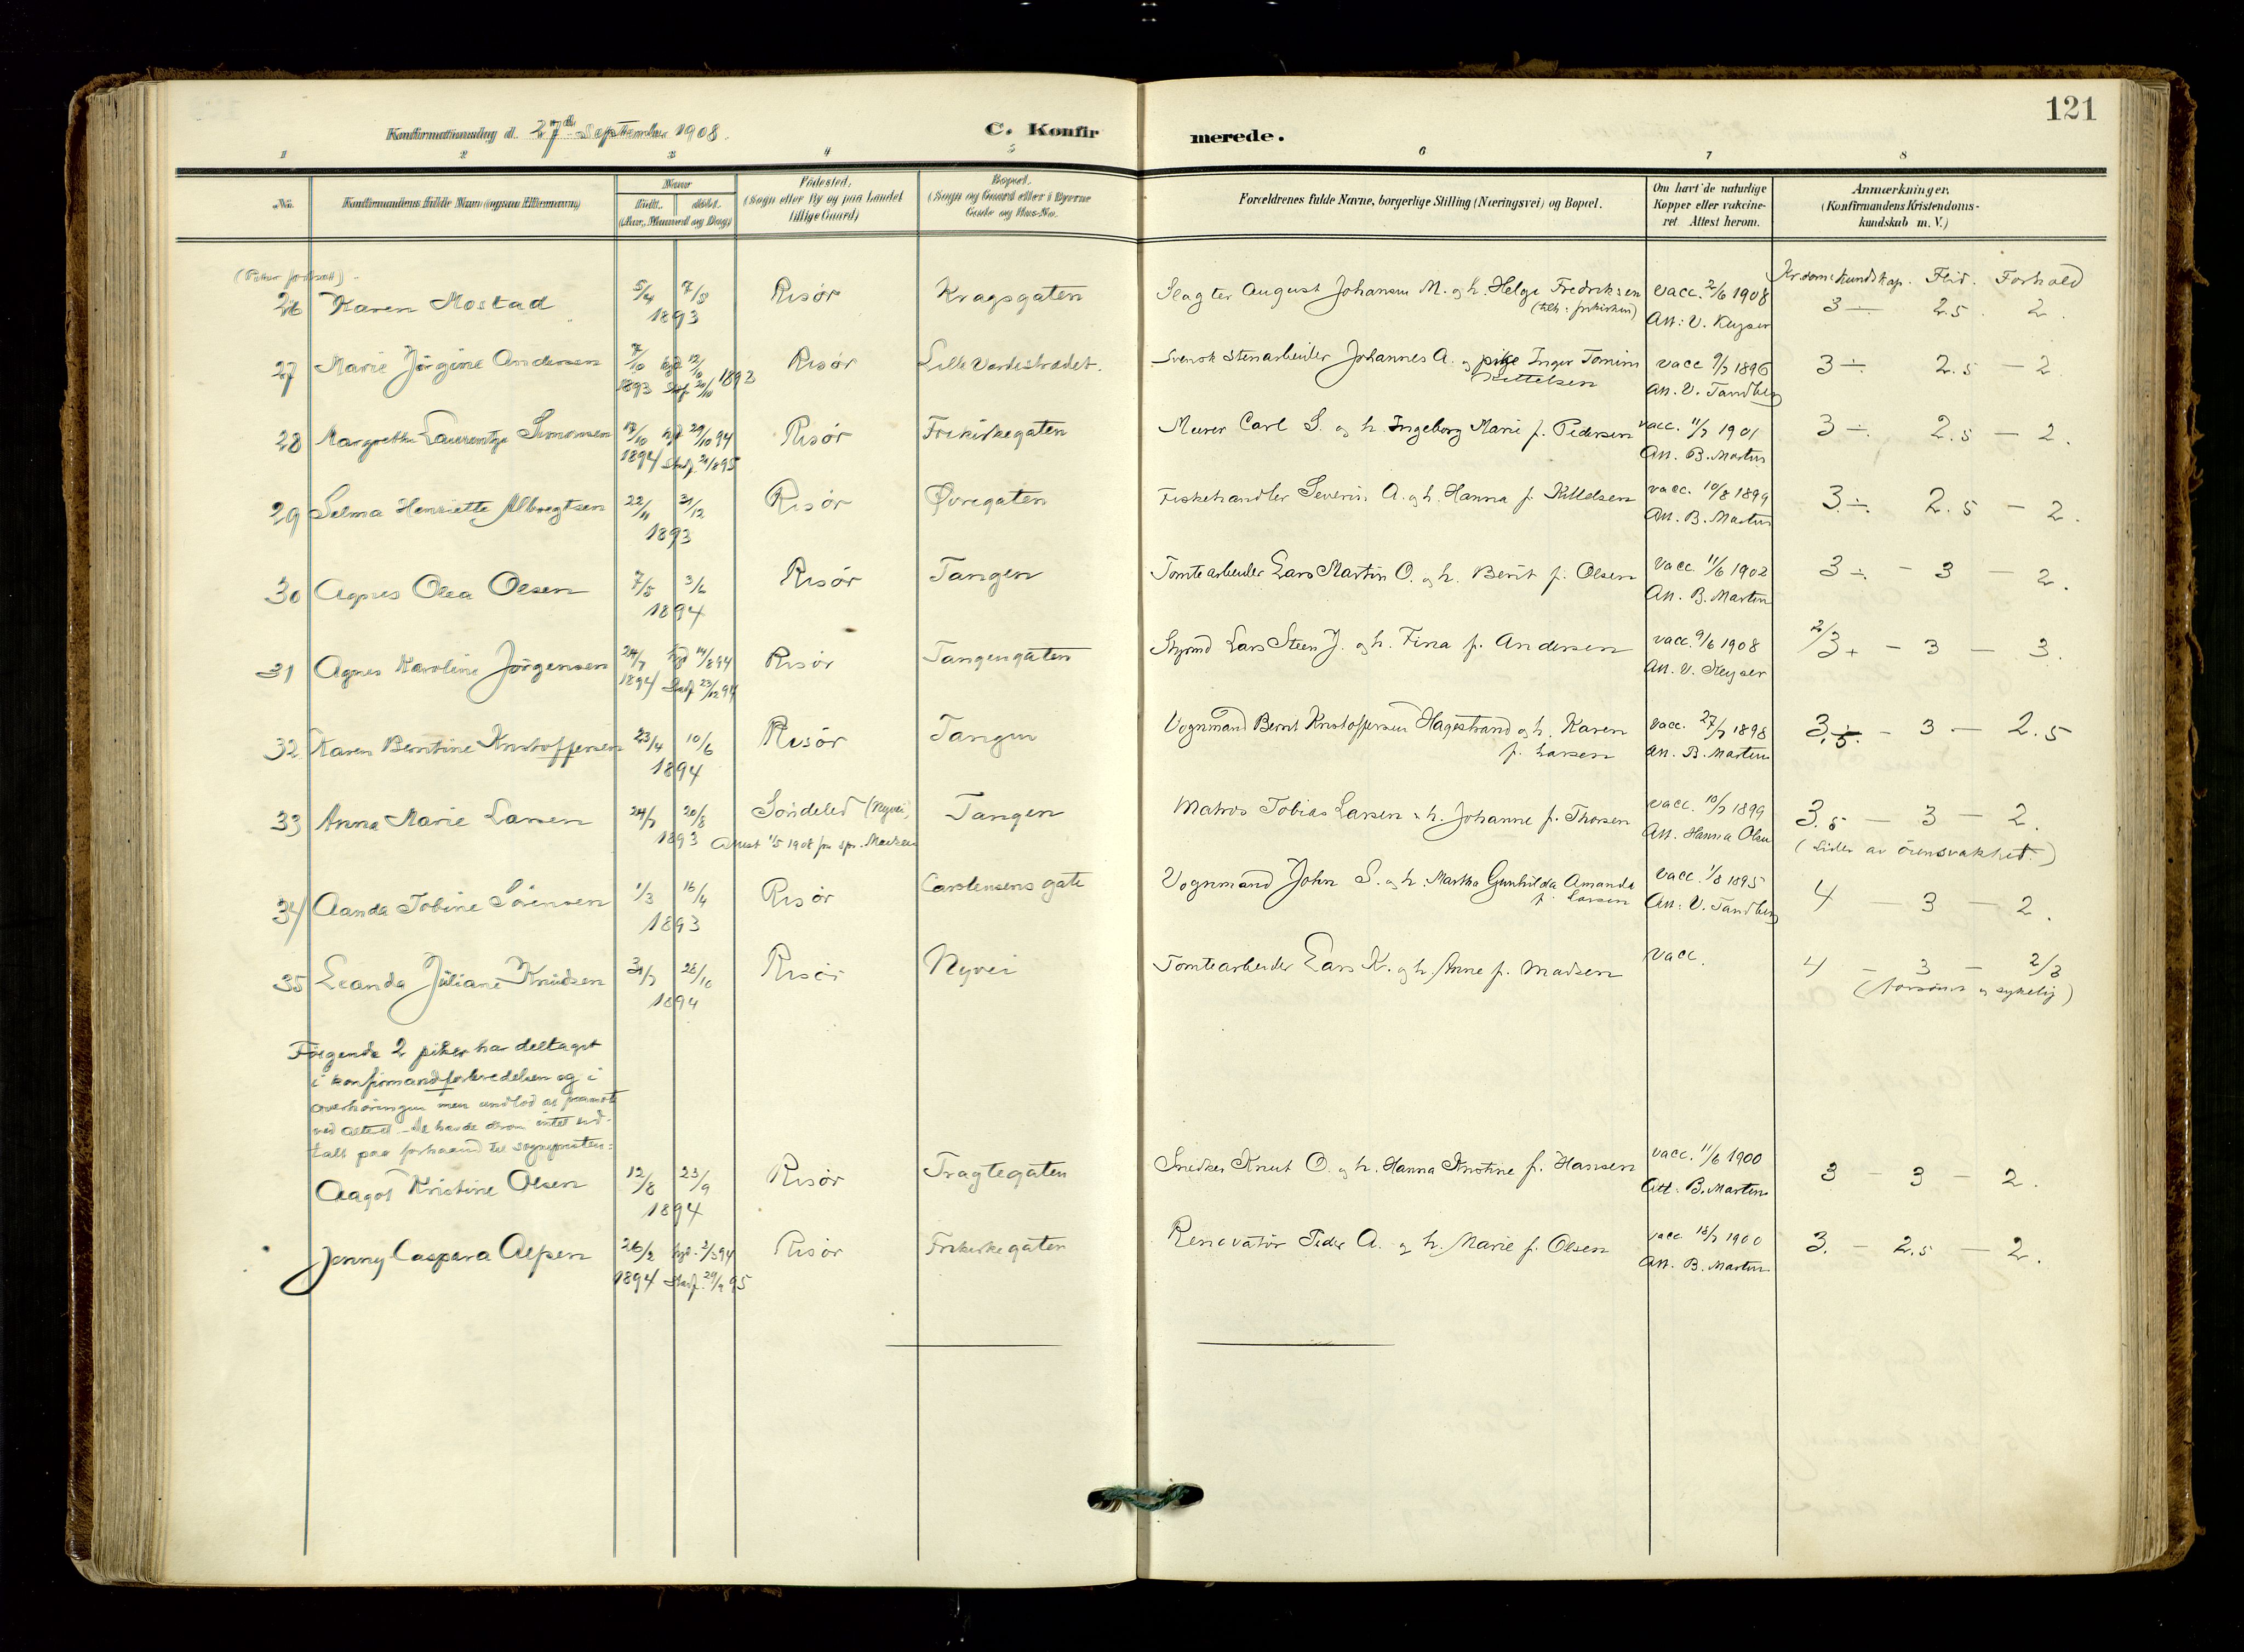 121
Konfirmationsdag d. 27de September 1908.
C. Konfirmerede.
1 2 3 4 5 6 7 8
No.
Konfirmandens fulde Navn (ogsaa Tilnavn)
Naar
født. døbt.
(Aar, Maaned og Dag)
Fødested.
(Sogn eller By og paa Landet
tillige Gaard)
Bopæl.
(Sogn og Gaard eller i Byerne
Gade og Hus-No.
Forældrenes fulde Navne, borgerlige Stilling (Næringsvei) og Bopæl.
Om havt de naturlige
Kopper eller vakcine-
ret Attest herom.
Anmærkninger.
(Konfirmandens Kristendoms-
kundskab m. V.)
(Piker fortsatt).
Krdomskundskap. Flid. Forhold
26 Karen Mostad 5/4 7/5 1893 Risør Kragsgaten Slagter August Johansen M. og h. Helga Fredriksen (tilh. frikirken) vacc. 2/6 1908 Att: V. Keyser 3 ÷ 2.5. 2.
27 Marie Jörgine Andersen 7/10 1893 hjd 12/10 Stadf. 20/10 1893 Risør Lille Vardestrædet. Svensk Stenarbeider Johannes A. og pige Inger Tomine Kittelsen vacc 9/7 1896 Att. V. Tandberg 3 ÷ 2.5 – 2
28 Margrethe Laurentze Simonsen 17/10 1894 hjd 29/10 94 Stadf. 21/8 95 Risør Frikirkegaten Murer Carl S. og h. Ingeborg Marie f. Pedersen vacc. 11/7 1901 Att. B. Martens 3 ÷ 2.5 – 2.
29 Selma Henriette Albregtsen 22/11 31/12 1893 Risør Øvregaten Fiskehandler Severin A. og h. Hanna f. Kittelsen vacc. 10/8 1899 Att. B. Martens 3 ÷. 2.5 – 2.
30 Agnes Olea Olsen 7/5 3/6 1894 Risør Tangen Tomtearbeider Lars Martin O. og h. Berit f. Olsen vacc. 11/6 1902 Att. B. Martens 3 ÷ – 3 – 2.
31 Agnes Karoline Jörgensen 24/7 1894 hjd 14/8 94 Stadf 23/12 94 Risør Tangengaten Styrmd Lars Steen J. og h. Fina f. Andersen vacc. 9/6 1908 Att. V. Keyser 2/3 + – 3 – 3.
32 Karen Berntine Kristoffersen 23/4 10/6 1894 Risør Tangen Vognmand Bernt Kristoffersen Hagestrand og h. Karen f. Larsen vacc. 27/7 1898 Att. B. Martens 3.5. – 3 – 2.5
33 Anna Marie Larsen 24/7 20/8 1893 Söndeled (Nyvei) Attest 1/5 1908 fra spr. Madsen Tangen Matros Tobias Larsen & h. Johanne f. Thorsen vacc. 10/7 1899 Att. Hanna Olsen 3.5 – 3 – 2.
(Lider av öiensvakhet.)
34 Aanda Tobine Sörensen 1/3 16/4 1893 Risør Carstensens gate Vognmand John S. og h. Martha Gunhilda Amanda f. Larsen vacc. 1/8 1895 Att: V. Tandberg 4 – 3 – 2.
35 Leanda Juliane Knudsen 31/7 28/10 1894 Risør Nyvei Tomtearbeider Lars K. og h. Anne f. Madsen vacc. 4 – 3 – 2/3
(forsömt og sykelig)
Følgende 2 piker har deltaget
i konfirmandforberedelsen og i
overhöringen men undlod at fremstå
ved alteret – de havde derom intet ud-
talt paa forhaand til sogneprösten:
Aagot Kristine Olsen 12/8 23/9 1894 Risør Tragtegaten Snidker Knut O. og h. Hanna Kristine f. Hansen vacc. 11/6 1900 Att: B. Martens 3 – 3 – 2.
Jenny Caspara Alfsen 26/2 1894 hjd. 2/3 94 Stadf. 29/9 95 Risør Frikirkegaten Renovatör Peder A. og h. Marie f. Olsen vacc. 18/7 1900 Att. B. Martens 3. – 2.5 – 2.